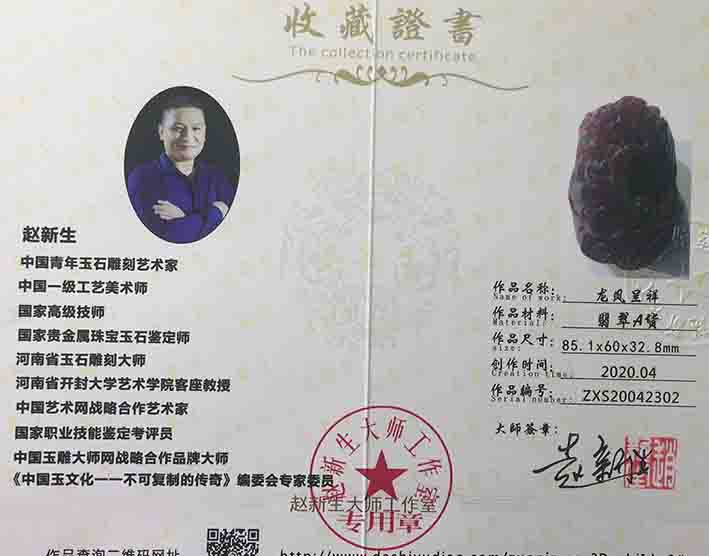 收藏證書
The collection certificate
赵新生
中国青年玉石雕刻艺术家
中国一级工艺美术师
国家高级技师
国家贵金属珠宝玉石鉴定师
河南省玉石雕刻大师
河南省开封大学艺术学院客座教授
中国艺术网战略合作艺术家
国家职业技能鉴定考评员
中国玉雕大师网战略合作品牌大师
《中国玉文化一一不可复制的传奇》编委会专家委员
作品名称: 龙凤呈祥
Name of work:
作品材料: 翡翠A货
Material:
作品尺寸: 85.1x60x32.8mm
size:
创作时间: 2020.04
Creation time:
作品编号: ZXS20042302
Serial number:
大师签章:
赵新生大师工作室
专用章
赵新生大师工作室
作品查询二维码网址